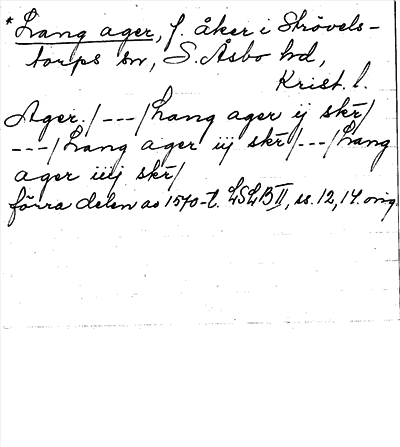 *Lang ager, f. åker i Strövels-
torps sn, S. Åsbo hd,
Krist. l.
Ager. /---/ Lang ager ij skr̄/
---/ Lang ager iij skr̄/---/ Lang
ager iiij skr̄/
förra delen av 1570-t. LSLB II, ss. 12, 14. orig.